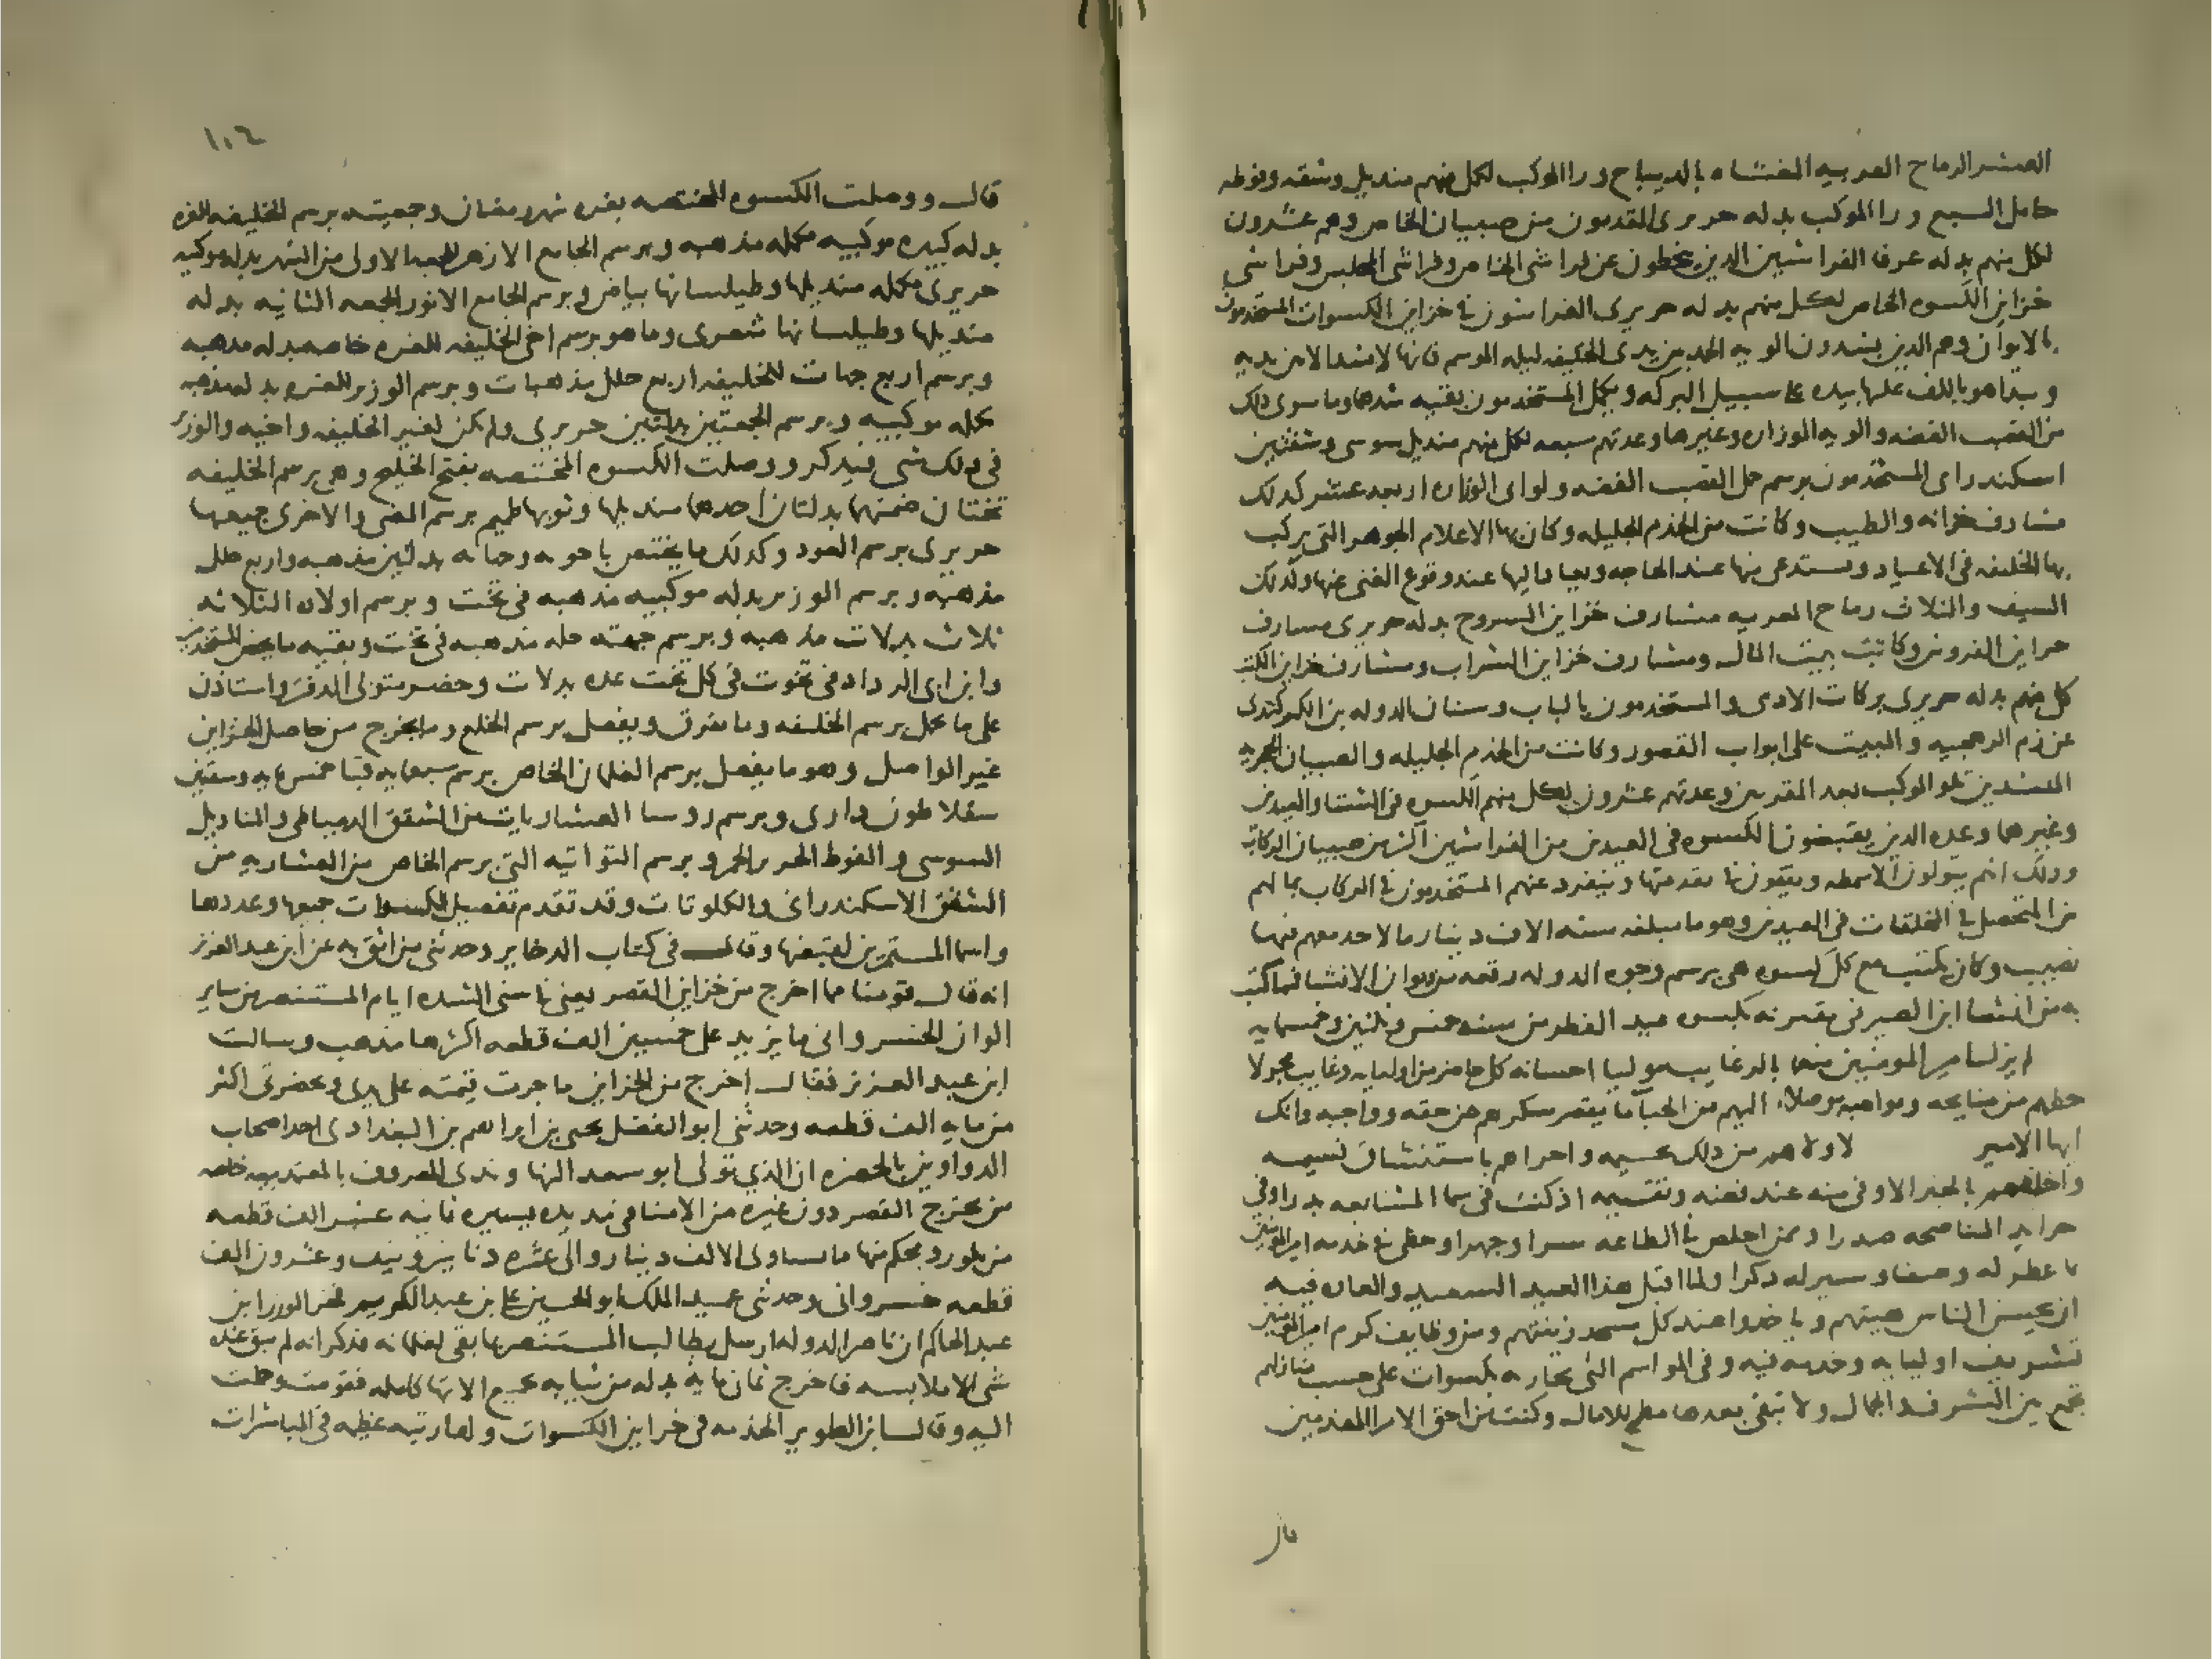 العشر الرماح العربيه المغشاه بالديباج ورا الموكب لكل منهم منديل وشقه وفوطه
حامل السبع ورا الموكب بدله حريرى المقدمون من صبيان الخاص وهم عشرون
لكل منهم بدله عرفا الفراشين الذين يخطون عن فراشى الخاص وفراشى المجلس وفراشى
خزاين الكسوه الخاص لكل منهم بدله حريرى الفراشون فى خزاين الكسوات المستخدمون
بالايوان وهم الذين يشدون الويه الحمد بين يدى الخليفه ليله الموسم فانها لا تشد الا بين يديه
ويبدا هو باللف عليها بيده على سبيل البركه ويكمل المستخدمون بقيه شدها وما سوى ذلك
من القصب الفضه والويه الوزاره وغيرها وعدتهم سبعه لكل منهم منديل سوسى وشقتين
اسكندرانى المستخدمون برسم حمل القصب الفضه ولواى الوزاره اربعه عشر كذلك
مشارف خزانه الطيب وكانت من الخدم الجليله وكان بها الاعلام الجوهر التى يركب
بها الخليفه فى الاعياد ويستدعى بها عند الحاجه ويعاد اليها عند وقوع الغنى عنها وكذلك
السيف والثلاث رماح العربيه مشارف خزاين السروج بدله حريرى مشارف
خزاين الفرش وكاتب بيت المال ومشارف خزاين الشراب ومشارف خزاين الكتب
كل منهم بدله حريرى بركات الادمى والمستخدمون بالباب وسنان الدوله بن الكركندى
عن زم الرهجيه والمبيت على ابواب القصور وكانت من الخدم الجليله والصبيان الحجريه
المشدين تلو الموكب بعد المقربين وعدتهم عشرون لكل منهم الكسوه فى الشتا والعيدين
وغيرهما وعده الذين يقبضون الكسوه فى العيدين من الفراشين اكثر من صبيان الركاب
وذلك انهم يتولون الاسمطه ويقفون فى تقدمتها وينفرد عنهم المستخدمون فى الركاب بما لهم
من المتحصل فى المخلفات فى العيدين وهو ما مبلغه سته الاف دينار ما لاحد معهم فيها
نصيب وكان يكتب مع كل كسوه هى برسم وجوه الدوله رقعه من ديوان الانشا فمما كتب
به من انشا ابن الصيرفى مقترنه بكسوه عيد الفطر من سنه خمس وثلثين وخمسمايه
لم يزل امير المومنين منعما بالرغايب موليا احسانه كل حاضر من اوليايه وغايب مجزلا
حظهم من منايحه ومواهبه موصلا اليهم من الحبا ما يقصر شكرهم عن حقه وواجبه وانك
ايها الامير لاولاهم من ذلك بجسيمه واحراهم باستنشاق نسيمه
واخلقهم بالجز الاوفى منه عند فضه وتقسيمه اذ كنت فى سما المشايعه بدرا وفى
جرايد المناصحه صدرا وممن اخلص فى الطاعه سرا وجهرا وحظى فى خدمه امير المومنين
بما عطر له وصفا وسير له ذكرا ولما اقبل هذا العيد السعيد والعاده فيه
ان يحسن الناس هيتهم وياخذوا عند كل مسجد زينتهم ومن وظايف كرم امير المومنين
تشريف اوليايه وخدمه فيه وفى المواسم التى تجاريه بكسوات على حسب منازلهم
تجمع بين الشرف والجمال ولا يبقى بعدها مطمع للامال وكنت من اخص الامرا المقدمين
قال
١٠٤
قال ووصلت الكسوه المختصه بغره شهر رمضان وجمعيته برسم الخليفه للغره
بدله كبيره موكبيه مكمله مذهبه وبرسم الجامع الازهر للجمعه الاولى من الشهر بدله موكبيه
حريرى مكمله منديلها وطيلسانها بياض وبرسم الجامع الانور للجمعه الثانيه بدله
منديلها وطيلسانها شعرى وما هو برسم اخى الخليفه للغره خاصه بدله مذهبه
وبرسم اربع جهات للخليفه اربع حلل مذهبات وبرسم الوزير للغره بدله مذهبه
مكمله موكبيه وبرسم الجمعتين بدلتين حريرى ولم يكن لغير الخليفه واخيه والوزير
فى ذلك شى فيذكر ووصلت الكسوه المختصه بفتح الخليج وهى برسم الخليفه
تختان ضمنهما بدلتان احداهما منديلها وثوبها طميم برسم المضى والاخرى جميعها
حريرى برسم العود وكذلك ما يختص باخوته وجهاته بدلتين مذهبه واربع حلل
مذهبه وبرسم الوزير بدله موكبيه مذهبه فى تخت وبرسم اولاده الثلاثه
ثلاث بدلات مذهبه وبرسم جهته حله مذهبه فى تخت وبقيه ما يخص المستخدمين
وابن ابى الرداد فى تخوت فى كل تخت عده بدلات وحضر متولى الدفتر واستاذن
على ما يحمل برسم الخليفه وما يفرق ويفصل برسم الخلع وما يخرج من حاصل الخزاين
غير الواصل وهو ما يفصل برسم الغلمان الخاص برسم سبعمايه قبا خمسمايه وسقتين
سقلاطون دارى وبرسم روسا العشاريات من الشقق الدمياطى والمناديل
السوسى والفوط الحرير الحمر وبرسم النواتيه التى برسم الخاص من العشاريه من
الشقق الاسكندرانى والكلوتات وقد تقدم تفصيل الكسوات جميعها وعددها
واسما المستمرين لقبضها وقال فى كتاب الدخاير وحدثنى من اثق به عن ابن عبد العزيز
انه قال قومنا مما اخرج من خزاين القصر يعنى فى سنى الشده ايام المستنصر من ساير
الوان الخسروانى ما يزيد على خمسين الف قطعه اكثرها مذهب وسالت
ابن عبد العزيز فقال اخرج من الخزاين ما جرت قيمته على يدى وبحضرتى اكثر
من مايه الف قطعه وحدثنى ابو الفضل يحيى بن ابراهيم بن البغدادى احد اصحاب
الدواوين بالحضره ان الذى تولى ابو سعد النهاوندى المعروف بالمعتمد بيعه خاصه
من مخرج القصر دون غيره من الامنا فى مده يسيره ثمانيه عشر الف قطعه
من بلور ومحكم منها ما يساوى الالف دينار والى عشره دنانير ونيف وعشرون الف
قطعه خسروانى وحدثنى عميد الملك ابو الحسن على بن عبد الكريم فخر الوزرا بن
عبد الحاكم ان ناصر الدوله ارسل يطالب المستنصر بما بقى لغلمانه فذكر انه لم يبق عنده
شى الا ملابسه فاخرج ثمان مايه بدله من ثيابه بجميع الاتها كامله فقومت وحملت
اليه وقال ابن الطوير الخدمه فى خزاين الكسوات ولها رتبه عظيمه فى المباشرات